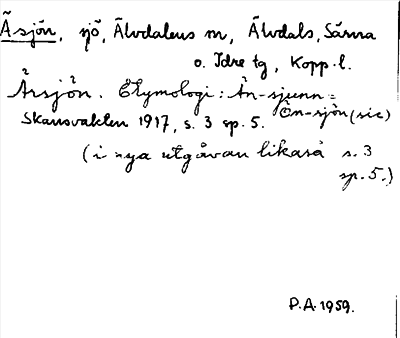 Åsjön, sjö, Älvdalens m, Älvdals, Särna
o. Idre tg, Kopp. l.
Årsjön. Etymologi: Ån-sjunn =
Ön-sjön (sic)
Skansvakten 1917, s. 3 sp. 5.
(i nya utgåvan likaså s. 3
sp. 5.)
P.A. 1959.